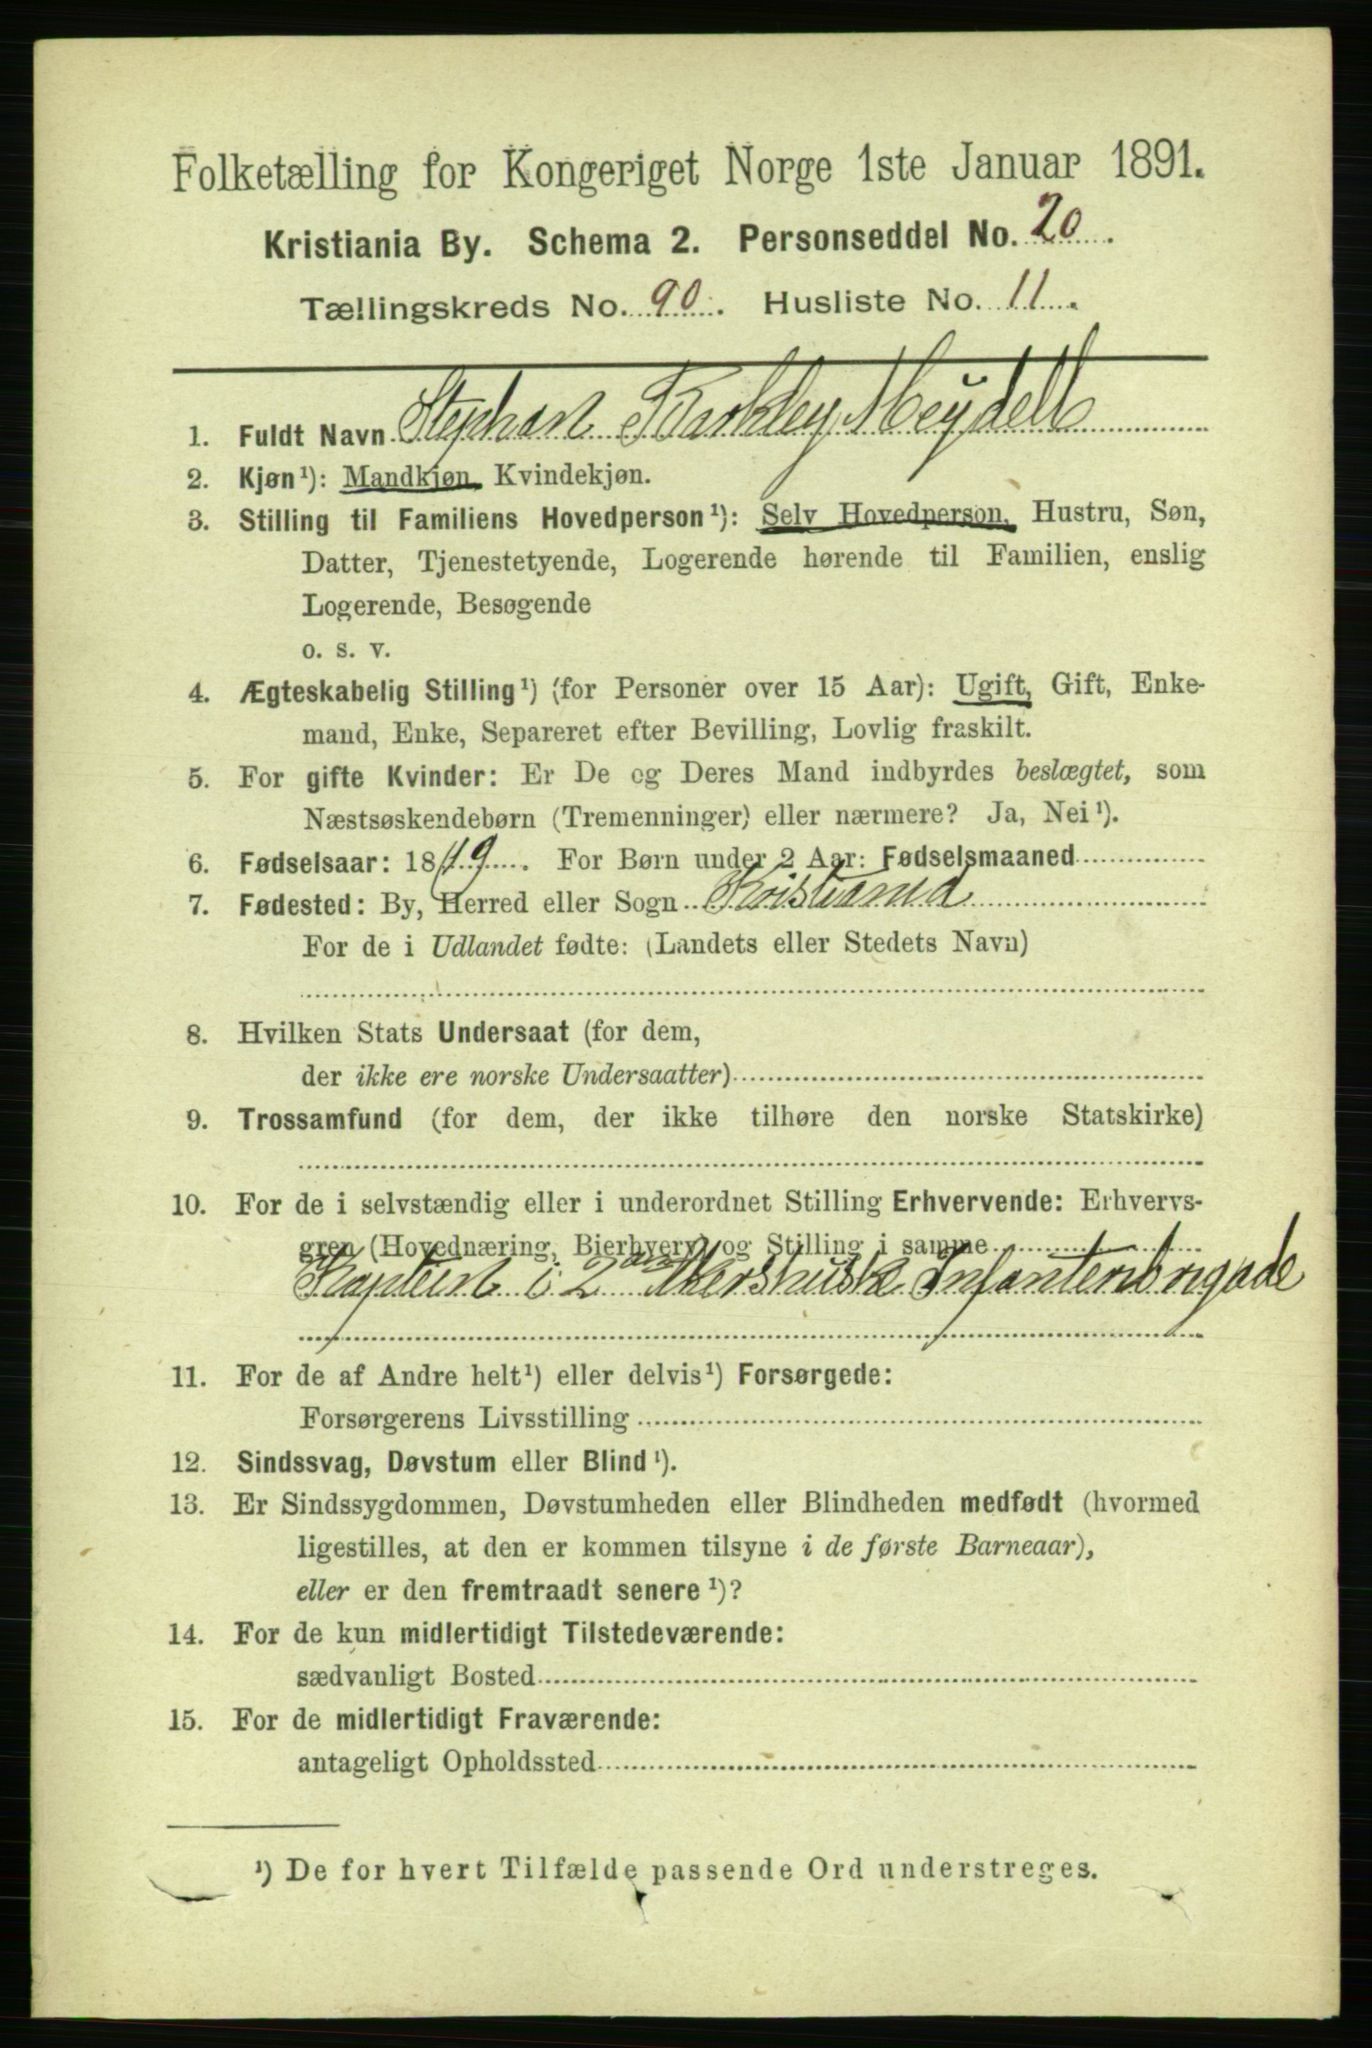 Folketælling for Kongeriget Norge 1ste Januar 1891.
Kristiania By. Schema 2. Personseddel No. 20.
Tællingskreds No. 90. Husliste No. 11.
1. Fuldt Navn Stephan Meydell
2. Kjøn¹): Mandkjøn, Kvindekjøn.
3. Stilling til Familiens Hovedperson¹): Selv Hovedperson, Hustru, Søn,
Datter, Tjenestetyende, Logerende hørende til Familien, enslig
Logerende, Besøgende
o. s. v.
4. Ægteskabelig Stilling¹) (for Personer over 15 Aar): Ugift, Gift, Enke-
mand, Enke, Separeret efter Bevilling, Lovlig fraskilt.
5. For gifte Kvinder: Er De og Deres Mand indbyrdes beslægtet, som
Næstsøskendebørn (Tremenninger) eller nærmere? Ja, Nei¹).
6. Fødselsaar: 1849. For Børn under 2 Aar: Fødselsmaaned
7. Fødested: By, Herred eller Sogn Kristiania
For de i Udlandet fødte: (Landets eller Stedets Navn)
8. Hvilken Stats Undersaat (for dem,
der ikke ere norske Undersaatter)
9. Trossamfund (for dem, der ikke tilhøre den norske Statskirke)
10. For de i selvstændig eller i underordnet Stilling Erhvervende: Erhvervs-
gren (Hovednæring, Bierhverv) og Stilling i samme
Kaptein i 2den Akershuske Infanteribrigade
11. For de af Andre helt¹) eller delvis¹) Forsørgede:
Forsørgerens Livsstilling
12. Sindssvag, Døvstum eller Blind¹).
13. Er Sindssygdommen, Døvstumheden eller Blindheden medfødt (hvormed
ligestilles, at den er kommen tilsyne i de første Barneaar),
eller er den fremtraadt senere¹)?
14. For de kun midlertidigt Tilstedeværende:
sædvanligt Bosted
15. For de midlertidigt Fraværende:
antageligt Opholdssted
¹) De for hvert Tilfælde passende Ord understreges.